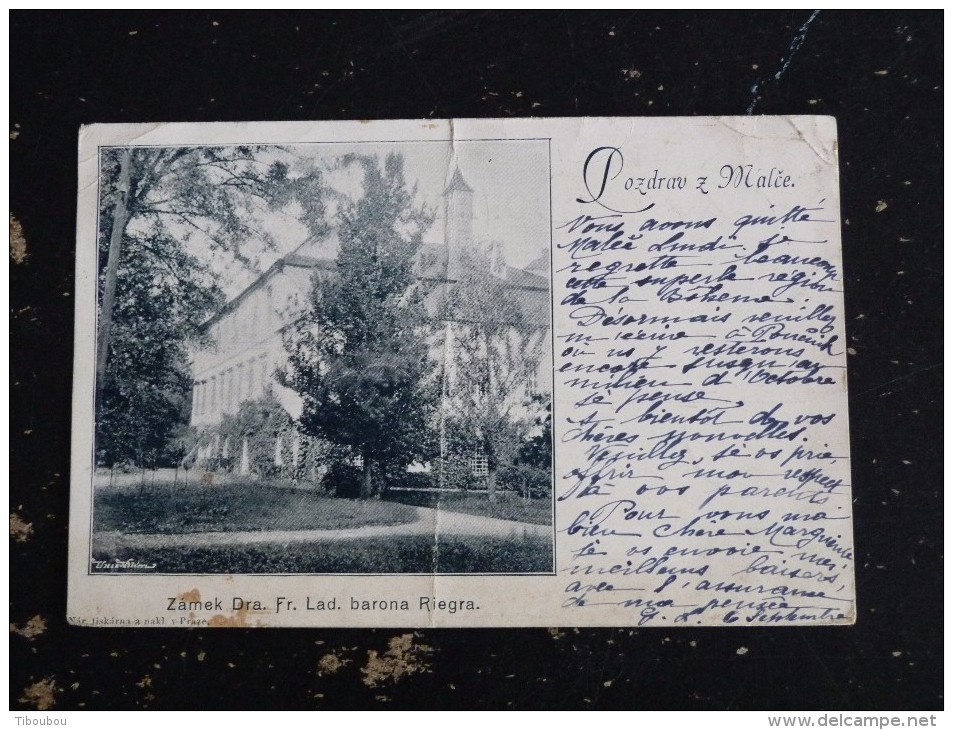 Pozdrav z Malče.
Vous avons quitté
Malèč Lundi. Je
regrette beaucoup
cette superbe région
de la Bohême.
Désormais veuillez
m'écrire à
où ns y resterons
encore jusqu'au
milieu d'Octobre
je pense.
A bientôt de vos
chères nouvelles.
Veuillez, je vs prie,
offrir mon respect
à vos parents.
Pour vous ma
bien chère Marguerite
je vs envoie mes
meilleurs baisers,
avec l'assurance
de ma pensée
6 Septembre
Zámek Dra. Fr. Lad. barona Riegra.
Nár. tiskárna a nakl. v Praze.
Tiboubou
www.delcampe.net